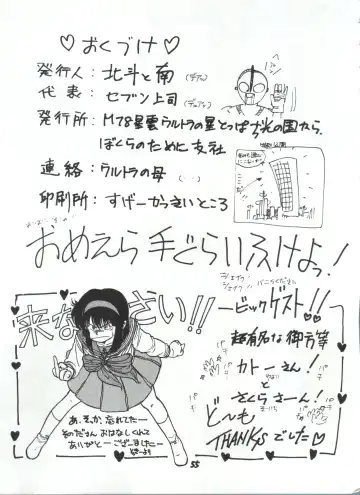 ♡ おくづけ ♡
発行人：北斗と南
代表：セブン上司
発行所：M78星雲ウルトラの星とっぱずれ光の国なら
ぼくらのために支社
連絡：ウルトラの母
印刷所：すげーかっさいところ
おめえら手ぐらいふけよっ！
来なさい!!
ービックゲスト!!
超有名な御方等
カトーさん！
と
さくらさーん！
ど〜も
THANKSでした♡
あ、そか、忘れてたー
そのださん おはなしくれて
ありがとーございましたー
55